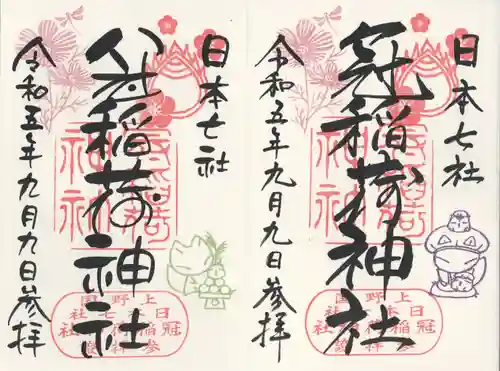 日本七社
冠稲荷神社
令和五年九月九日參拝
上野国
日本七社
冠稲荷神社
日本七社
稲荷神社
令和五年九月九日參拝
上野国
日本七社
冠稲荷神社